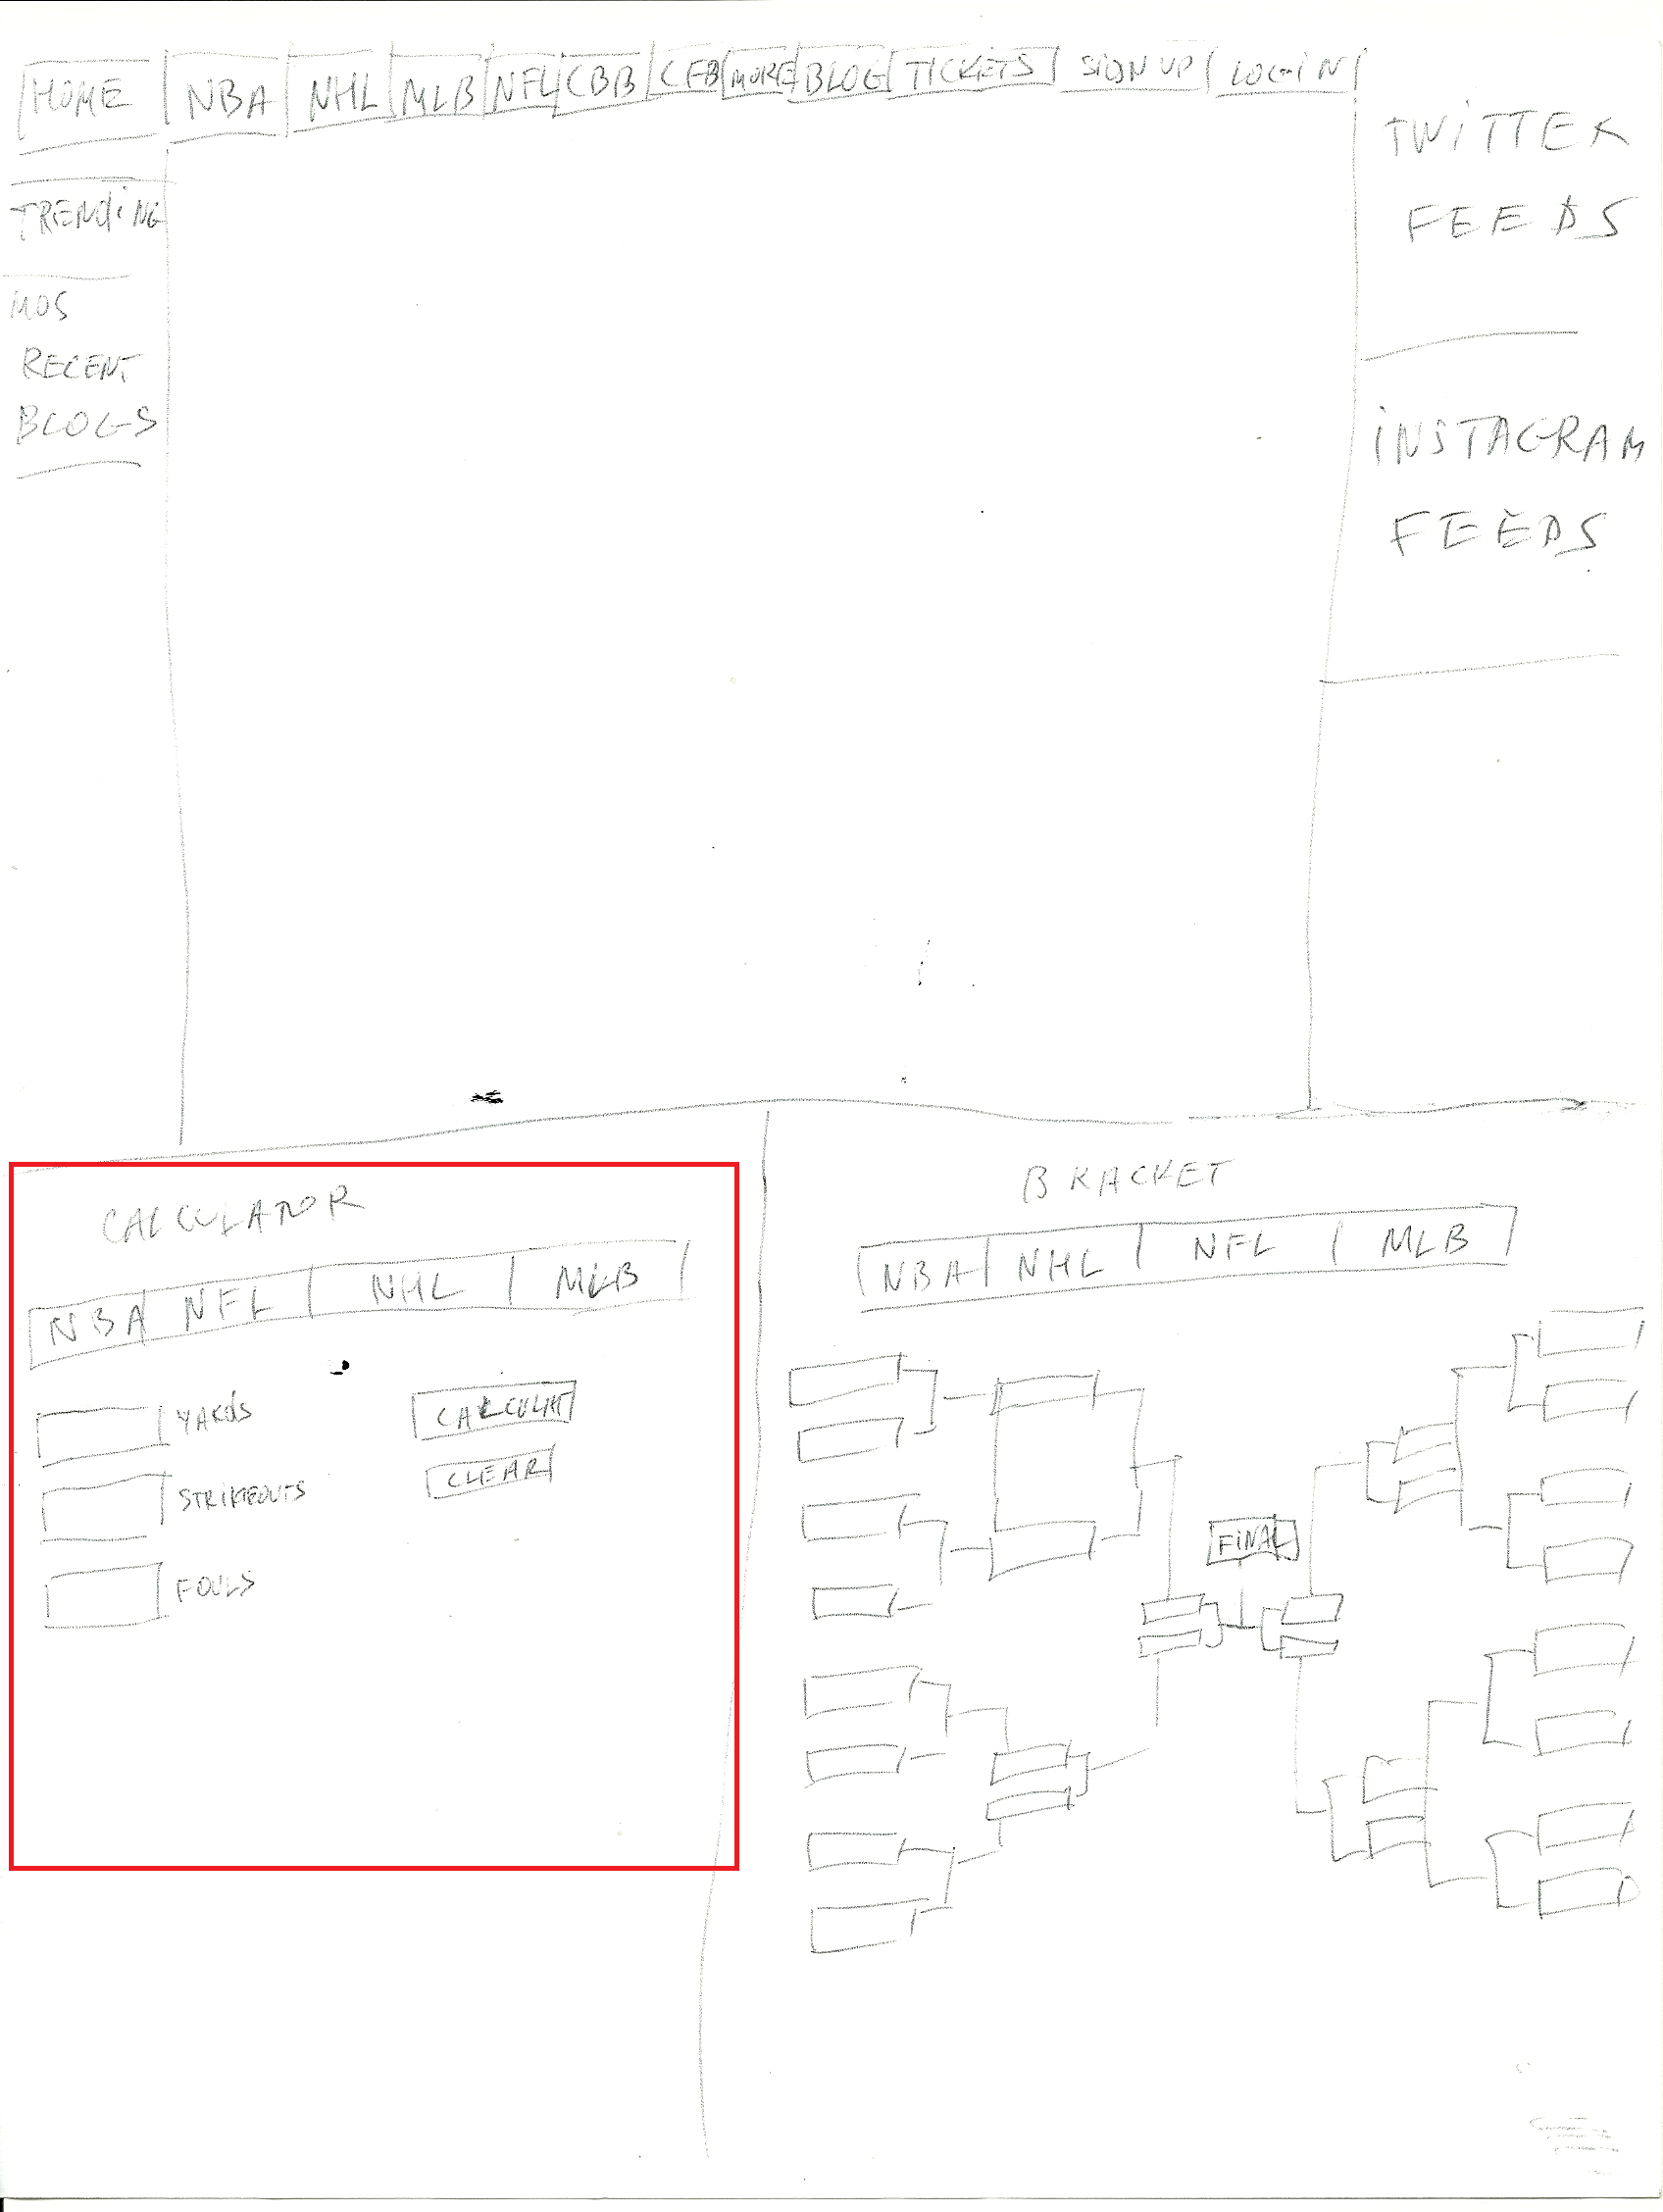 HOME NBA NHL MLB NFL CBB CFB MORE BLOG TICKETS SIGN UP LOGIN
TRENDING
MOS
RECENT
BLOGS
TWITTER
FEEDS
INSTAGRAM
FEEDS
CALCULATOR
NBA NFL NHL MLB
YARDS
STRIKEOUTS
FOULS
CALCULAT
CLEAR
BRACKET
NBA NHL NFL MLB
FINAL